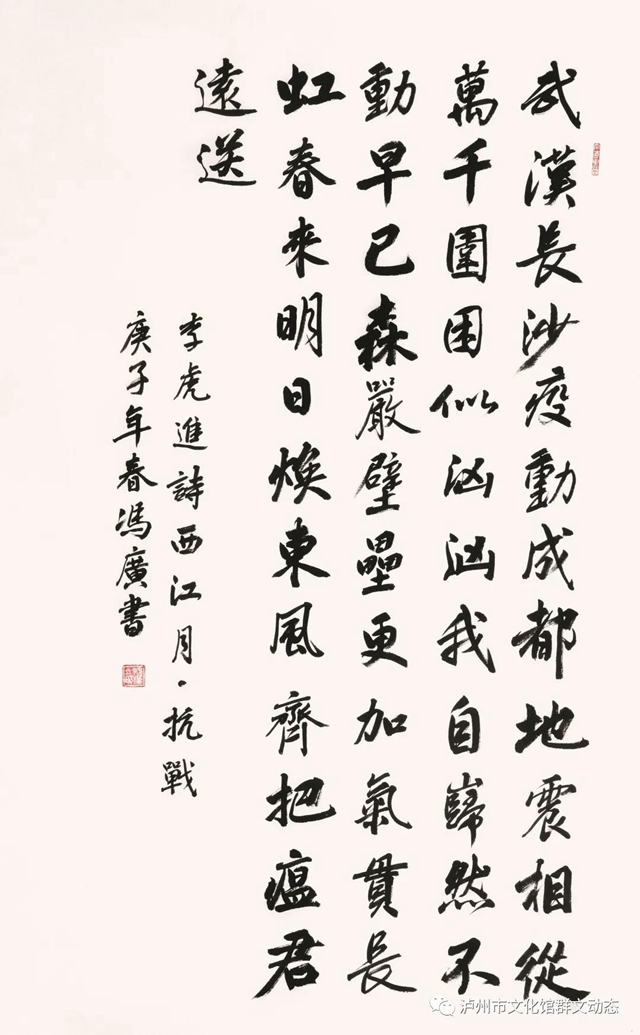 武漢長沙疫動成都地震相從
萬千圍困似洶洶我自巋然不
動早已森嚴壁壘更加氣貫長
虹春來明日煥東風齊把瘟君
遠送
李虎進詩西江月·抗戰
庚子年春馮廣書
泸州市文化馆群文动态